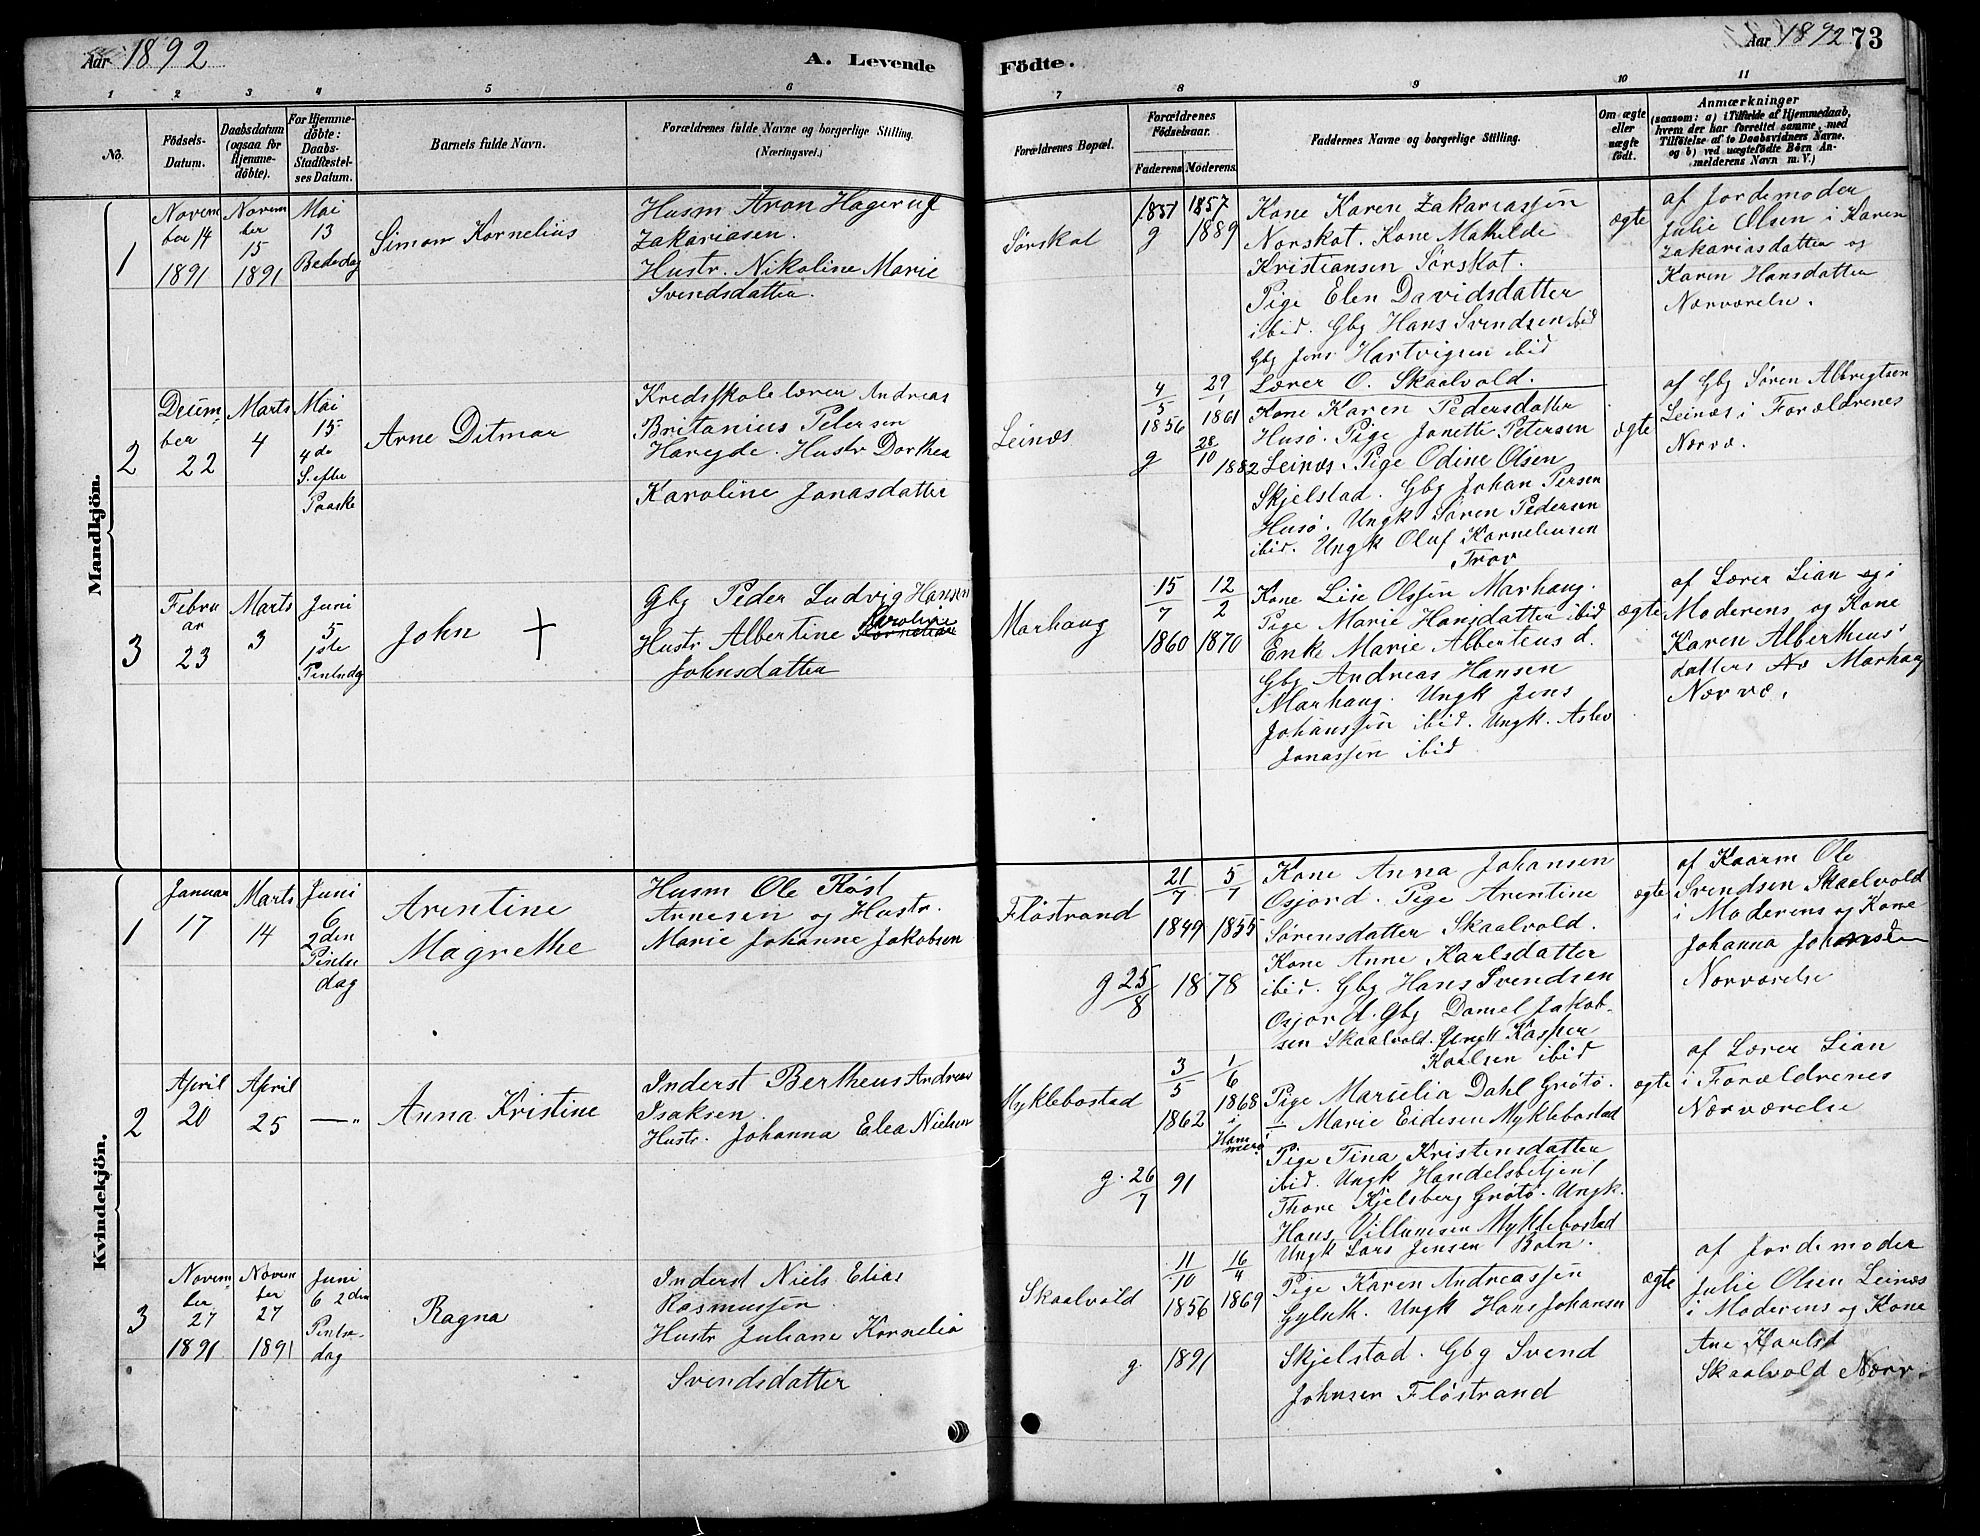 Aar 1892
A. Levende
Födte.
Aar 1892 73
1 2 3 4 5 6 7 8 9 10 11
No.
Födsels-
Datum.
Daabsdatum
(ogsaa for
Hjemme-
döbte).
For Hjemme-
döbte:
Daabs-
Stadfæstel-
ses Datum.
Barnets fulde Navn.
Forældrenes fulde Navne og borgerlige Stilling.
(Næringsvei.)
Forældrenes Bopæl.
Forældrenes
Födselsaar.
Faderens. Moderens.
Faddernes Navne og borgerlige Stilling.
Om ægte
eller
uægte
födt.
Anmærkninger
(saasom: a) i Tilfælde af Hjemmedaab,
hvem der har forrettet samme, med
Tilföielse af to Daabsvidners Navne,
og b) ved uægtefödte Börn An-
melderens Navn m. V.)
Mandkjön.
1
Novem
ber 14
1891
Novem
ber
15
1891
Mai
13
Bededag
Simon Kornelius
Husm Aron Hagerup
Zakariasen.
Hustr. Nikoline Marie
Svendsdatter.
Sørskot
1851 1857
g 1889
Kone Karen Zakariassen
Norskot. Kone Mathilde
Kristiansen Sørskot.
Pige Elen Davidsdatter
ibid. Gbg Hans Svendsen ibid
Gbg Jens Hartvigsen ibid
ægte
af Jordemoder
Julie Olsen i Karen
Zakariasdatter og
Karen Hansdatter
Nærværelse.
2
Decem
ber
22
Marts
4
Mai
15
4de
S. efter
Paaske
Arne Ditmar
Kredsskolelærer Andreas
Britanius Petersen
Hustr Dorthea
Karoline Jonasdatter
Leinæs
4/5
1856
29/1
1861
g 28/10 1882
Lærer O. Skaalvold.
Kone Karen Pedersdatter
Husø. Pige Janette Petersen
Leinæs. Pige Odine Olsen
Skjelstad. Gbg Johan Persen
Husø. Ungk Søren Pedersen
ibid. Ungk Oluf Korneliusen
ægte
af Gbg Søren Albrigtsen
Leinæs i Forældrenes
Nærvæ.
3
Febru
ar
23
Marts
3
Juni
5
1ste
Pintsdag
John +
Gbg Peder Ludvig Hansen
Karoline
Hustr Albertine
Johnsdatter
Marhaug
15/7
1860
12/2
1870
Kone Line Olssen Marhaug.
Pige Marie Hansdatter ibid
Enke Marie Alberteus d.
Gbg Andreas Hansen
Marhaug. Ungk Jens
Johanssen ibid. Ungk.
Jonassen ibid
ægte
af Lærer Lian i
Moderens og Kone
Karen Albertheus-
datters Marhaug
Nærvæ.
Kvindekjön.
1
Januar
17
Marts
14
Juni
6
2den
Pintse
dag
Arentine
Magrethe
Husm Ole Røst
Arnesen og Hustr.
Marie Johanne Jakobsen
Fløstrand
21/7
1849
5/7
1855
g 25/8 1878
Kone Anna Johansen
Osjord. Pige Arentine
Sørensdatter Skaalvold.
Kone Anne Karlsdatter
ibid. Gbg Hans Svendsen
Osjord. Gbg Daniel Jakob-
sen Skaalvold. Ungk Kasper
Karlsen ibid
ægte
af Kaarm Ole
Svendsen Skaalvold
i Moderens og Kone
Johanna Johansen
Nærværelse
2
April
20
April
25
—„
Anna Kristine
Inderst Bertheus Andreas
Isaksen.
Hustr. Johanna Elea Nielsen
Myklebostad
3/5
1862
1/6
1868
i
Ham
merø
g. 26/7 91
Pige Marselia Dahl Grøtø.
Marie Eidesen Myklebostad
Pige Tina Kristensdatter
ibid. Ungk Handelsbetjent
Thore Kjelsberg Grøtø. Ungk.
Hans Villumsen Myklebostad
Ungk Lars Jensen
ægte
af Lærer Lian
i Forældrenes
Nærværelse
3
Novem
ber
27
1891
Novem
ber
27
1891
Juni
6 2den
Pintse-
dag
Ragna
Inderst Niels Elias
Rasmussen.
Hustr Juliane Kornelia
Svendsdatter
Skaalvold
11/10
1856
16/4
1869
g. 1891
Pige Karen Andreassen
Ungk Hans Johansen
Skjelstad. Gbg Svend
Johnsen Fløstrand
ægte
af Jordemoder
Julie Olsen Leinæs
i Moderens og Kone
Ane Karlsd
Skaalvold Nærv.